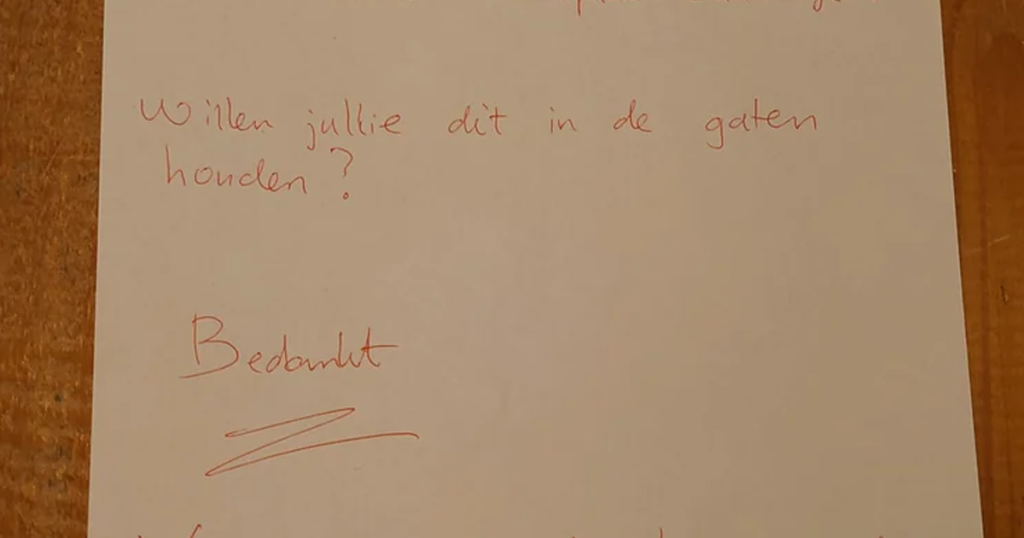 Willen jullie dit in de gaten
houden?
Bedankt